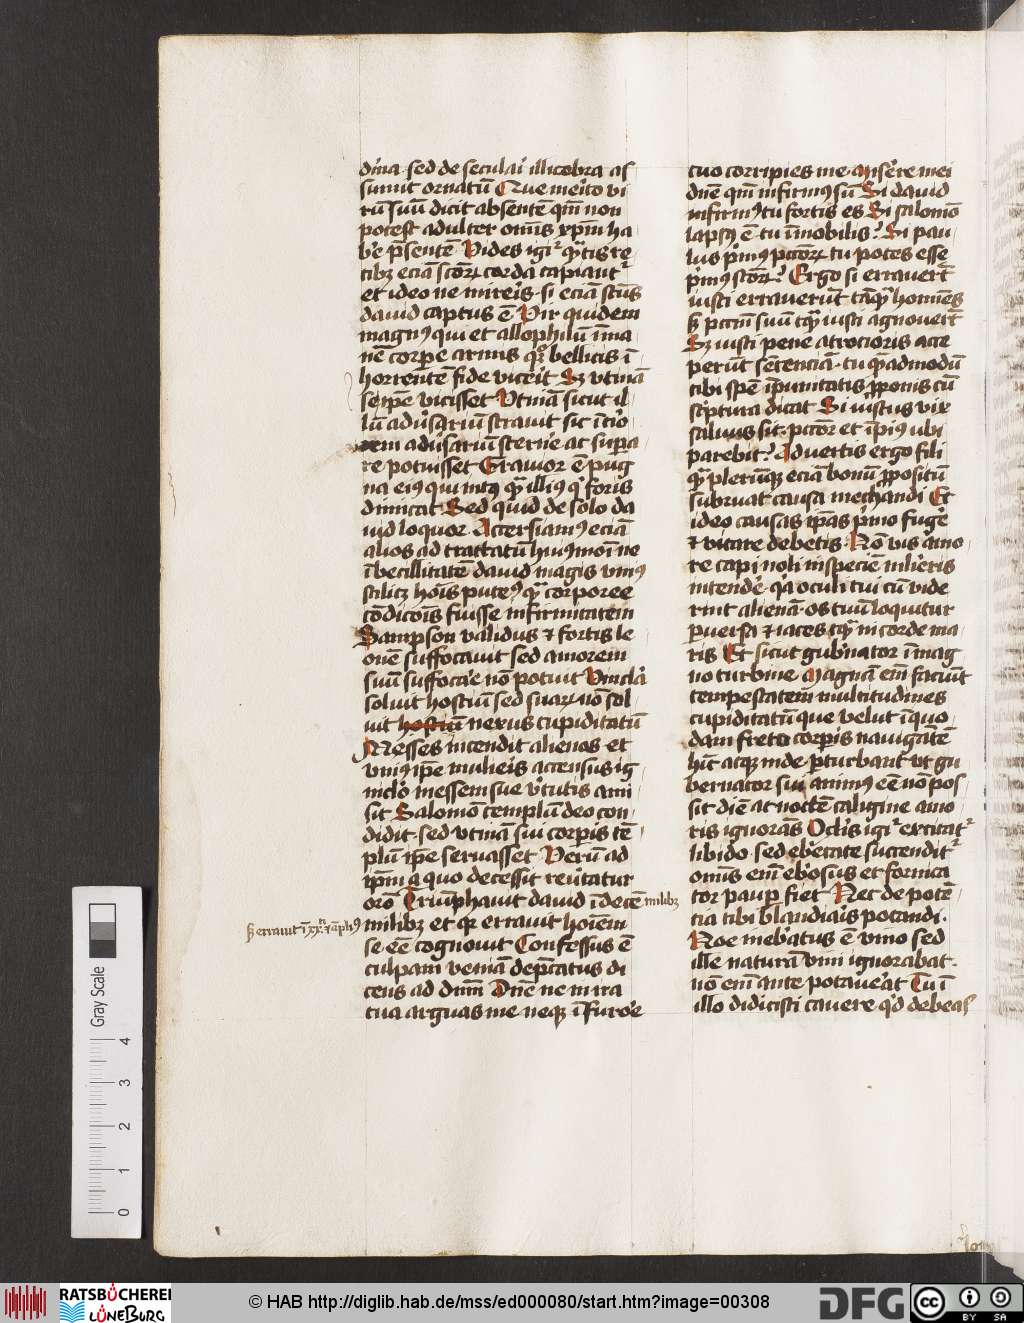 dīna. sed de seculaī illicebra as
sumit ornatū Que meīto vi
rū suū dicit absentē qm̄ non
potest adulter om̄s xp̄m ha
be p̄sentē Vides igiͬ qͣtis re
tibꝫ eciā sc̄oꝝ corda capiantᷣ
et ideo ne mireīs. si eciā sc̄us
dauid captus ē Vir quidem
magnꝰ qui et allophilū īma
nē corꝑe armis qͦꝫ bellicis ī
horrentē fide viceīt Sꝫ vtinā
semꝑe vicisset Vtinā sicut il
lū adūsariū strauit sic īt̄io
rem adūsariū sterne ac suꝑa
re potuisset Grauior ē pug
na eiꝰ qui intꝰ qͣ illiꝰ qͥ foris
dimicat Sed quid de solo da
uid loquor Accersiamꝰ eciā
alios ad tractatū huiꝰmoī ne
ībecillitatē dauid magis vniꝰ
scilicꝫ hoīs puteꝰ qͣ corporee
cōdicoīs fuisse infirmitatem
Sampson validus ⁊ fortis le
onē suffocauit sed amorem
suū suffocae nō potuit Vincla
soluit hostiū sed suaꝝ nō sol
uit hostiū nexus cupiditatū
Messes incendit alienas et
vniꝰ ip̄e mulieīs accensus ig
niclo messem sue v̄tutis ami
sit Salomō templū deo con
didit. sed vtinā sui corꝑis tē
plū ip̄e seruasset Verū ad
ip̄m a quo decessit reūtatur
oro Triūphauit dauid ī decē milibꝫ
ſꝫ errauit ī
milibꝫ et qꝛ errauit hoīem
se eē cognouit Confessus ē
culpam veniā dep̄catus di
cens ad dnm̄ Dnē ne in ira
tua arguas me. neqꝫ ī furoe
tuo corripies me. Miserē mei
dnē qm̄ infirmꝰ sū Si dauid
infirmꝰ tu fortis es Si salomō
lapsꝰ ē. tu īmobilis? Si pau
lus p̄mꝰ pcc̄oꝝ tu potes esse
p̄mꝰ sc̄oꝝ? Ergo si erraueīt
iusti errauerūt tāqͣ homīes
ſꝫ pcc̄m suū tqͣ iusti agnoueīt
Sꝫ iusti pene atrocioris acce
perūt sētenciā. tu qͣadmodū
tibi spē īpunitatis ꝓponis cū
sc̄ptura dicat Si iustus vix
saluus sit. pcc̄or et īpiꝰ ubi
parebit? Aduertis ergo fili
qͣ plerūqꝫ eciā bonū ꝓpositū
subruat causa mechandi Et
ideo causas ip̄as p̄mo fugē
⁊ vitare debetis. Nō vis amo
re capi noli inspeciē mlīeris
intendē. qͥa oculi tui cū vide
rint alienā. os tuū loquitur
ꝑuersa ⁊ iaces tqͣ in corde ma
ris Et sicut gubnator ī mag
no turbine Magnā em̄ faciūt
tempestatem multitudines
cupiditatū que velut ī quo
dam freto corꝑis nauigātē
hīc atqꝫ inde ꝑturbant vt gu
bernator sui animꝰ eē nō pos
sit diē ac noctē caligine amo
ris ignorās Oclīs igiͬ excitatᷣ
libido. sed ebetate succenditᷣ
om̄is em̄ ebosus et fornica
tor pauꝑ fiet Nec de potē
tia tibi blandiaīs potandi.
Noe inebatus ē vino sed
ille naturā vini ignorabat.
nō em̄ ante potaueāt Tu ī
illo didicisti cauere qͥd debeas
Gray Scale
4
3
2
1
0
RATSBÜCHEREI
LÜNEBURG
© HAB http://diglib.hab.de/mss/ed000080/start.htm?image=00308
DFG
cc
BY SA